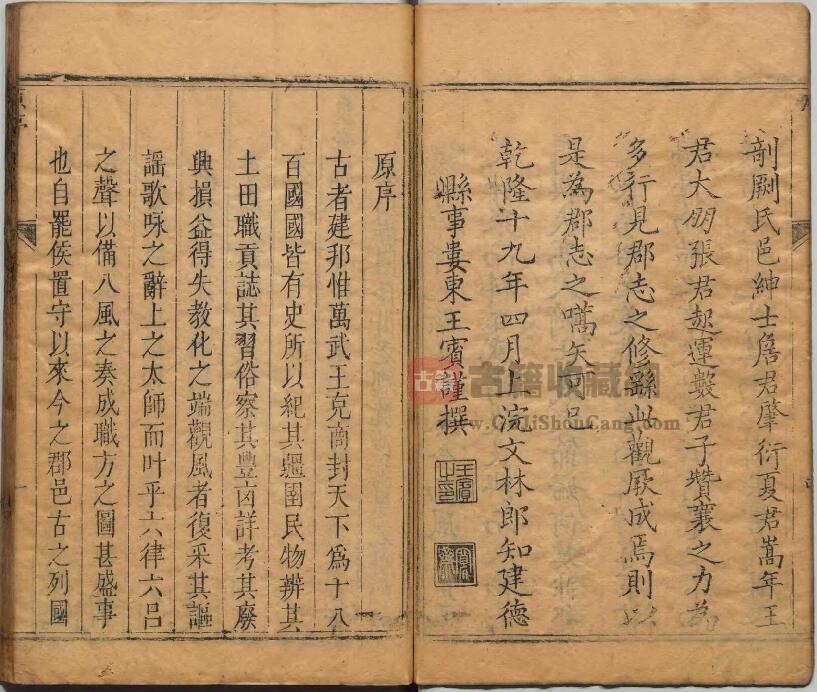 剞劂氏邑紳士詹君肇衍夏君嵩年王
君大朋張君起運數君子贊襄之力為
多行見郡志之修繇此觀厥成焉則以
是為郡志之嚆矢可已
乾隆十九年四月上浣文林郎知建德
縣事婁東王賓謹撰
王賓之印
原序
古者建邦惟萬武王克商封天下爲十八
百國國皆有史所以紀其疆圉民物辨其
土田職貢誌其習俗察其豐凶詳考其廢
興損益得失教化之端觀風者復采其謳
謠歌咏之辭上之太師而叶乎六律六呂
之聲以備八風之奏成職方之圖甚盛事
也自罷侯置守以來今之郡邑古之列國
古籍 古籍收藏網
www.GuJiShouCang.com